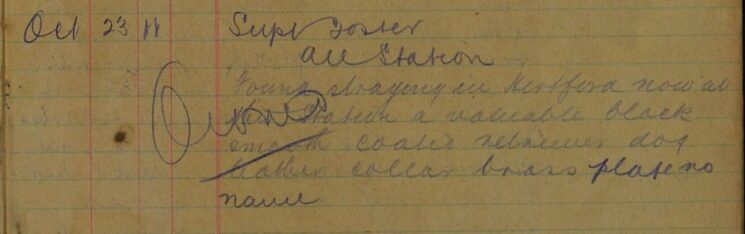 Oct 23 11 Supt Foster
All Station
Found straying in Hertford now at
this Station a valuable black
smooth coated retriever dog
leather collar brass plate no
name